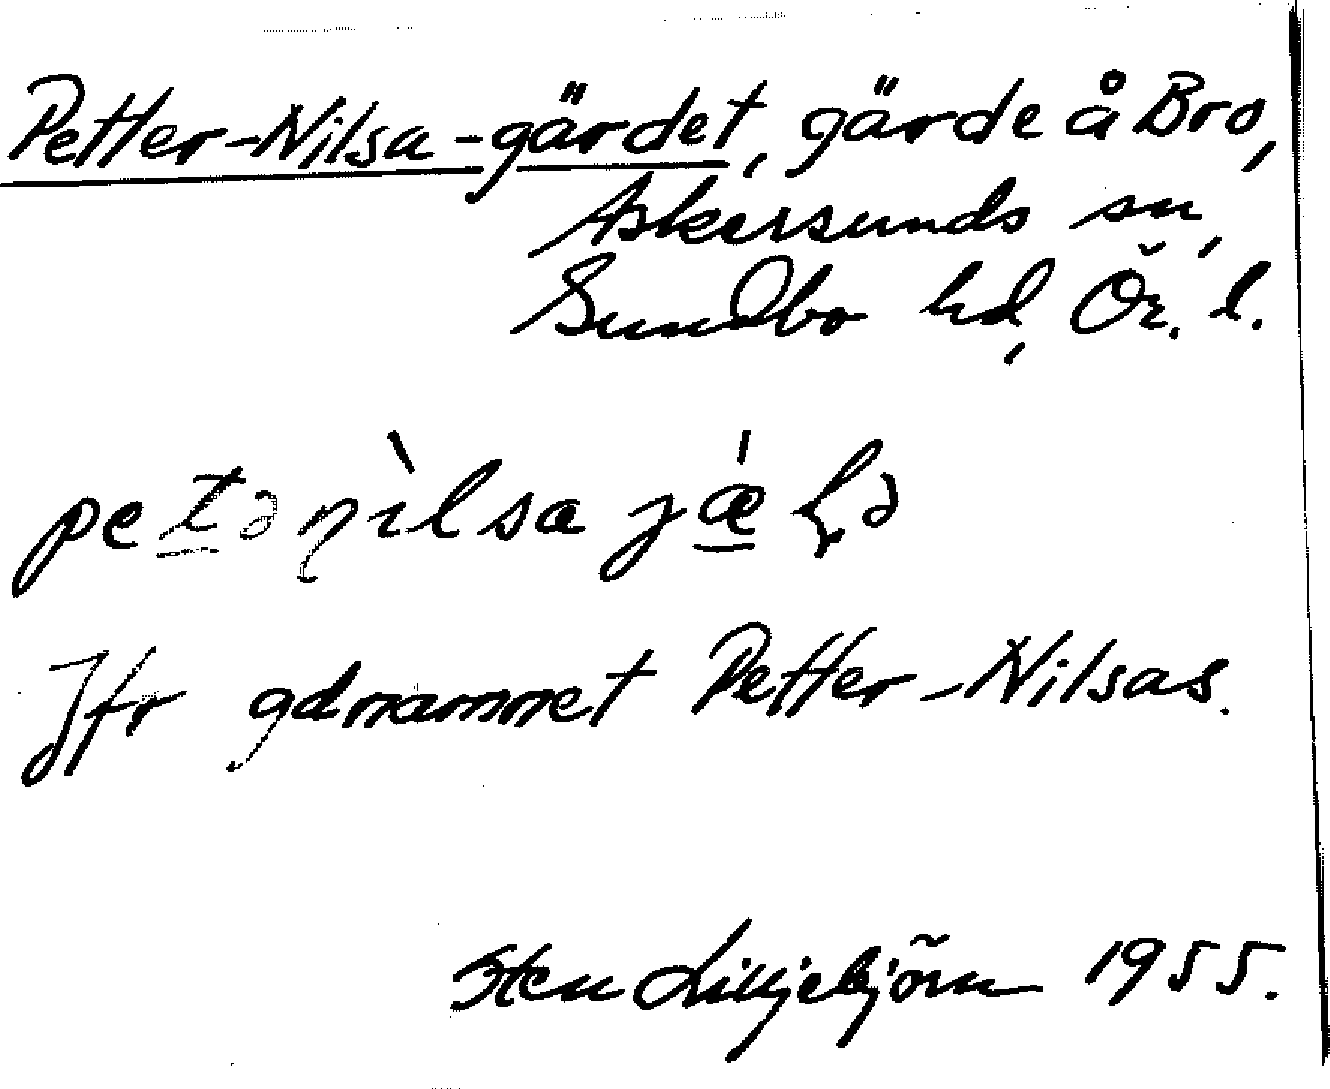 Petter-Nilsa-gärdet, gärde å Bro,
Askersunds sn,
Sundbo hd, Ör. l.
Jfr gdnamnet Petter-Nilsas.
Sten Lilljebjörn 1955.